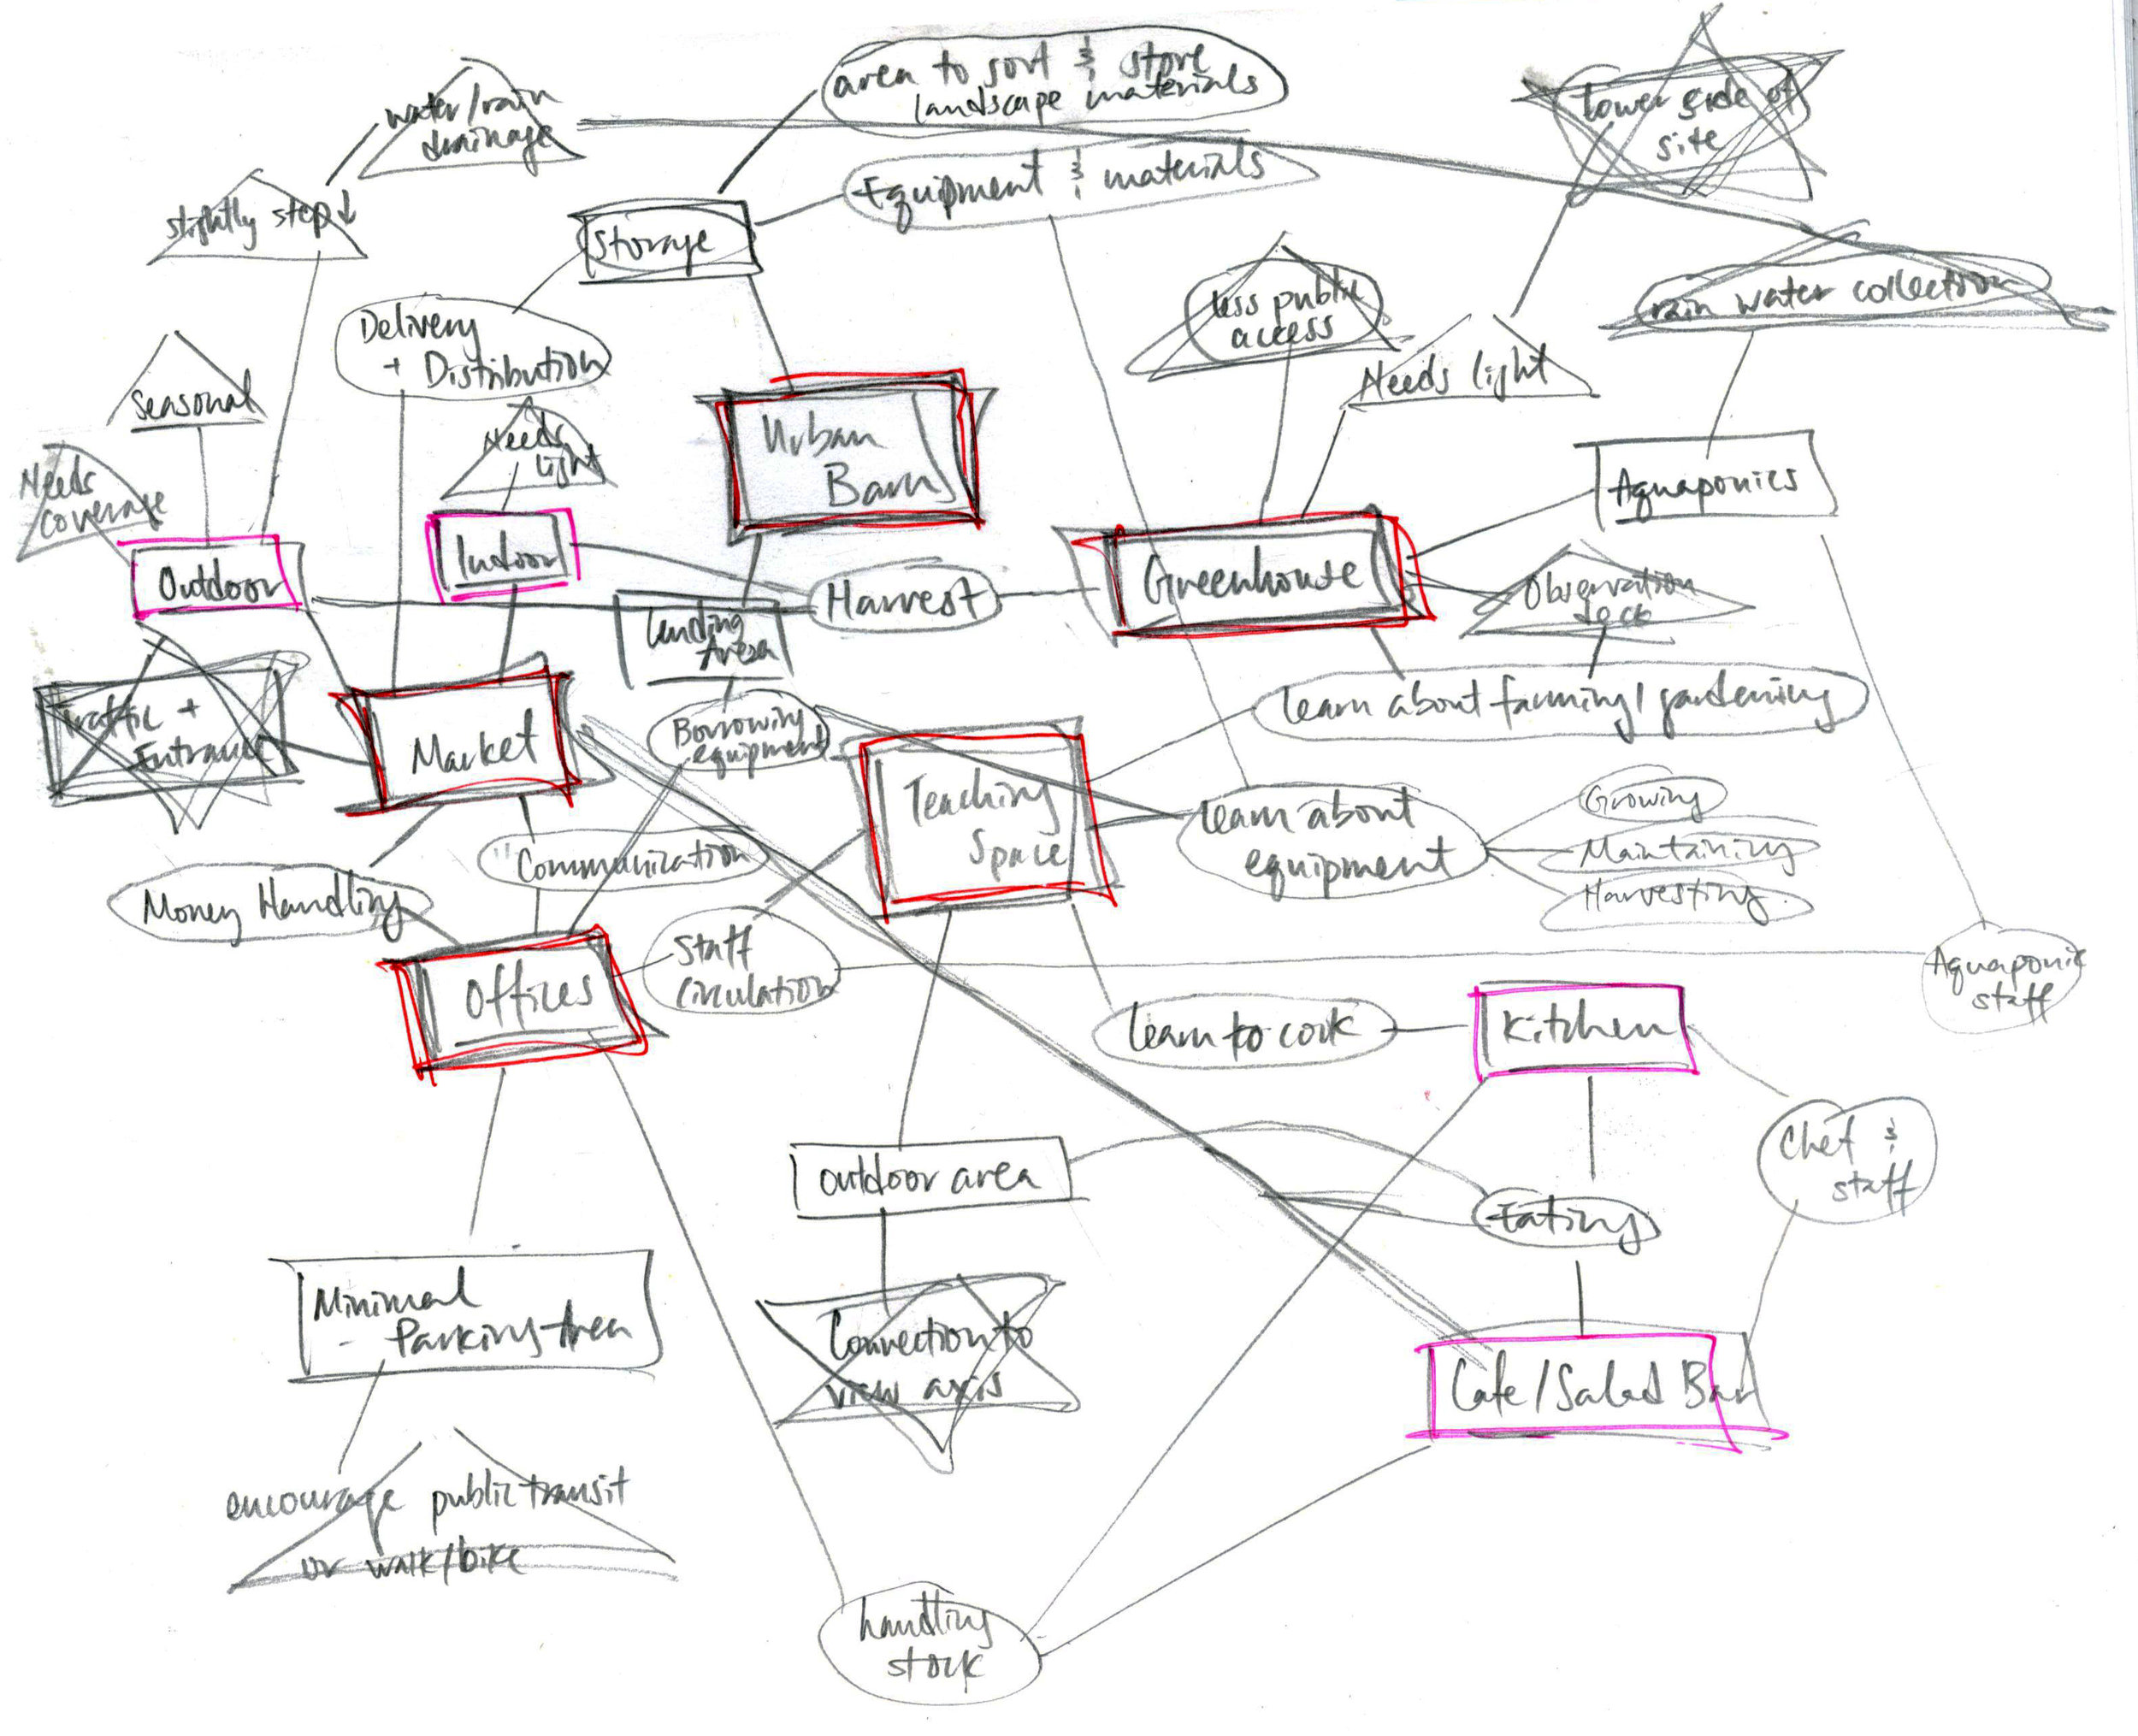 area to sort & store
landscape materials
water/rain
drainage
lower side of
site
Equipment & materials
slightly step↓
Storage
rain water collection
less public
access
Delivery
+ Distribution
Needs light
Seasonal
Needs
light
Urban
Barn
Needs
coverage
Aquaponics
Indoor
Outdoor
Harvest
Greenhouse
Observation
deck
Lending
Area
learn about farming/gardening
Traffic +
Entrance
Market
Borrowing
equipment
Teaching
Space
learn about
equipment
Growing
Maintaining
Harvesting
"Communization
Money Handling
Staff
circulation
Offices
Aquaponic
staff
learn to cook
Kitchen
Chef &
staff
outdoor area
Eating
Minimal
- Parking Area
Connection to
view axis
Cafe/Salad Bar
encourage public transit
or walk/bike
handling
stock